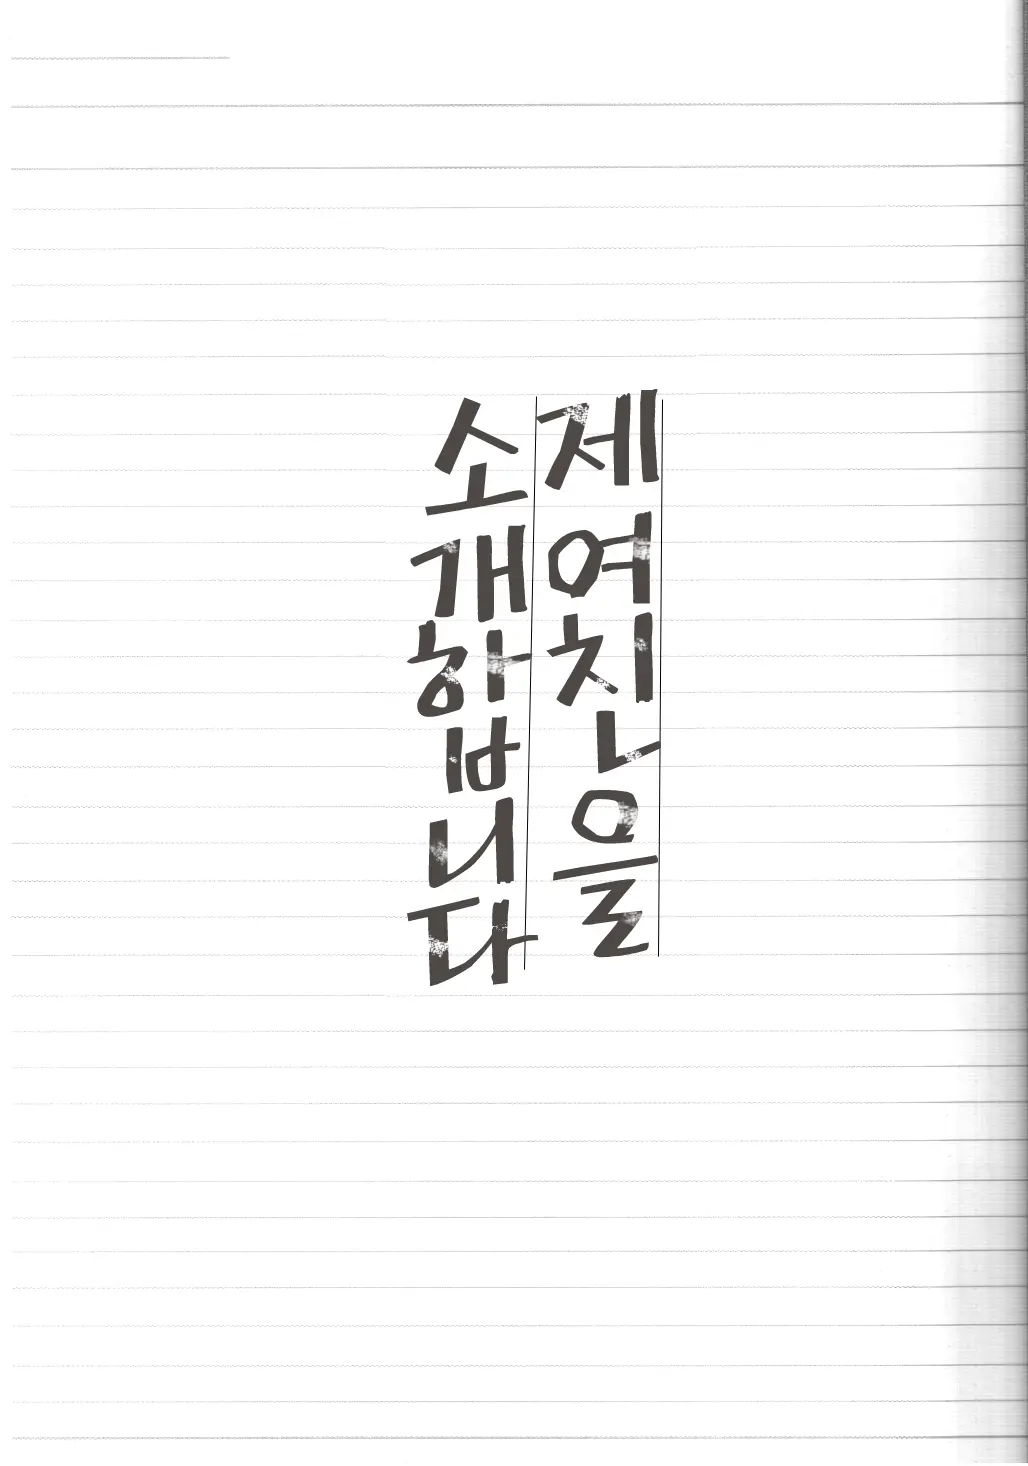 제 여친을
소개합니다